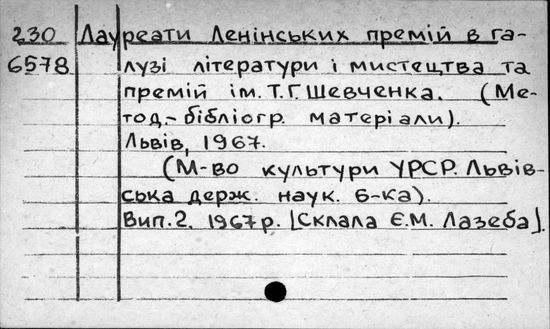 230 Лауреати Ленінських премій в га-
6578 лузі літератури і мистецтва та
премій ім. Т.Г. Шевченка. (Ме-
тод.-бібліогр. матеріали).
Львів, 1967.
(М-во культури УРСР. Львів-
ська держ. наук. б-ка).
Вип. 2. 1967 р. [Склала Є.М. Лазеба].